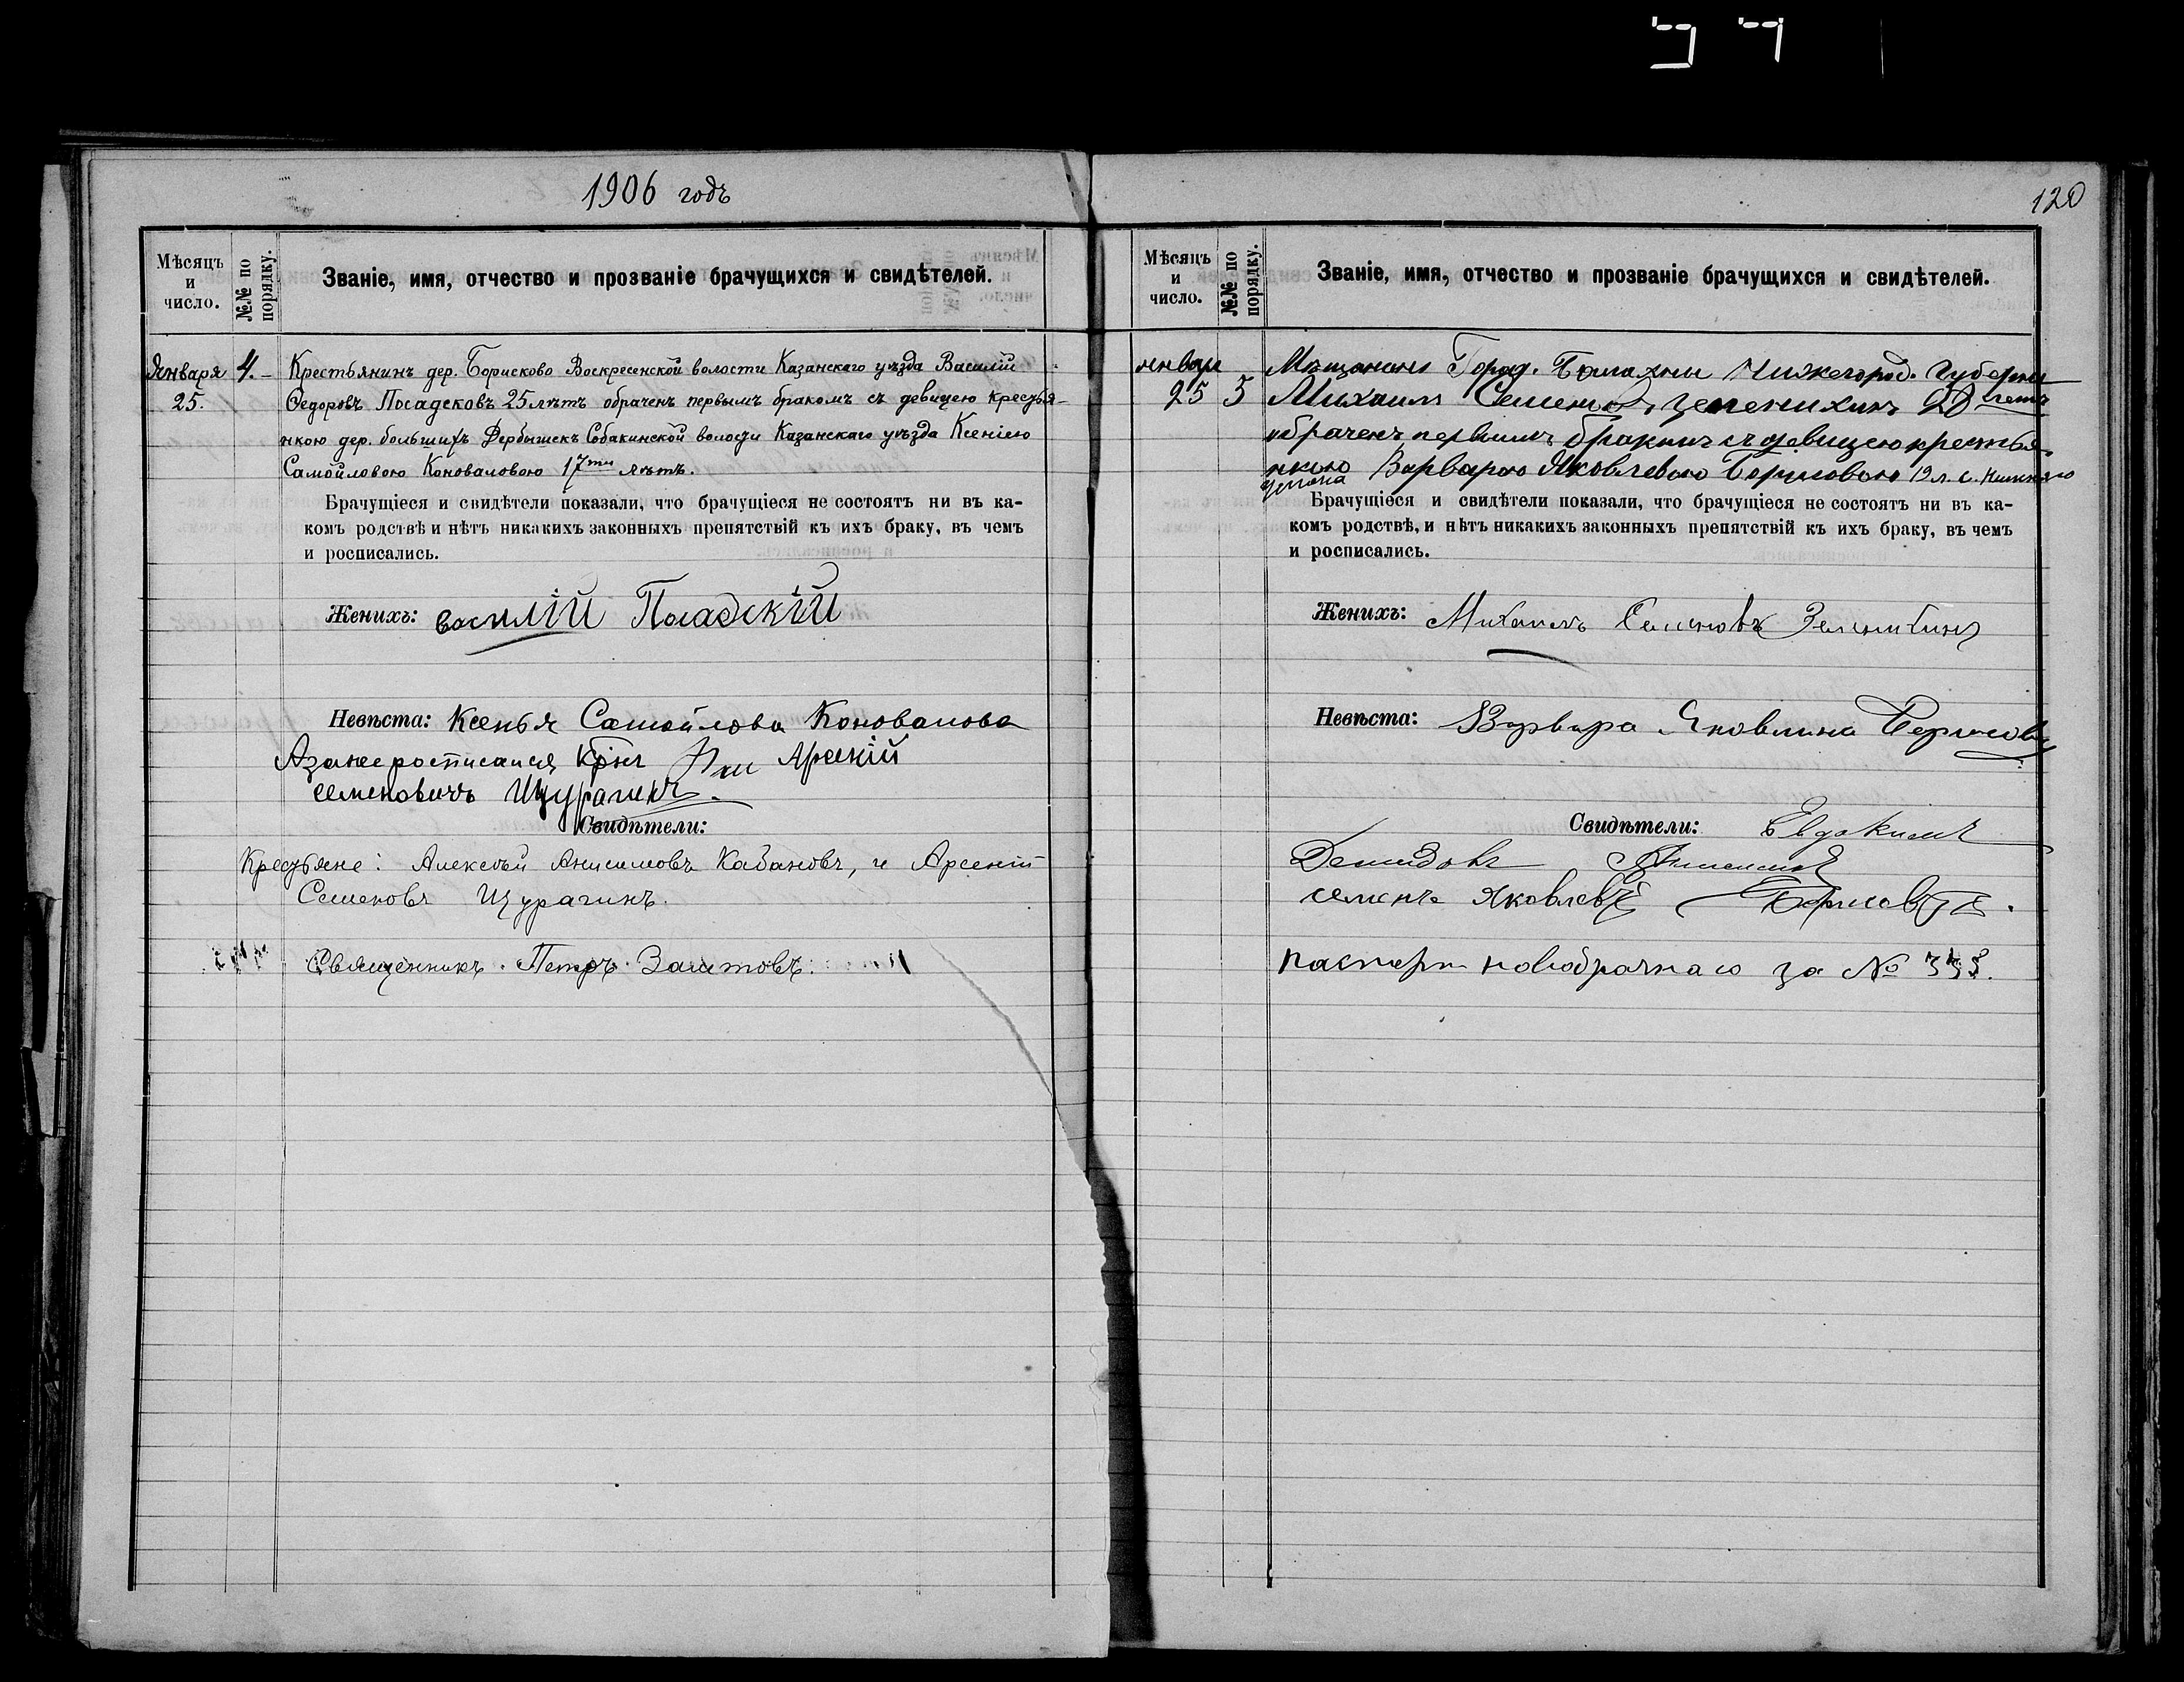 1906 годъ
Мѣсяцъ и число.
№№ по порядку.
Званіе, имя, отчество и прозваніе брачущихся и свидѣтелей.
Января 4. Крестьянинъ дер. Борисково Воскресенской волости Казанскаго уѣзда Василій
25. Ѳедоровъ Посадсковъ 25 лѣтъ обраченъ первымъ бракомъ съ девицею крестья-
нкою дер. большихъ Дербышекъ Собакинской волости Казанскаго уѣзда Ксеніею
Самойловою Коноваловою 17ти лѣтъ.
Брачущіеся и свидѣтели показали, что брачущіеся не состоятъ ни въ ка-
комъ родствѣ и нѣтъ никакихъ законныхъ препятствій къ ихъ браку, въ чемъ
и росписались.
Женихъ: василій Посадскій
Невѣста: Ксенья Самойлова Коновалова
Азанее росписался Крнъ Арсений
семеновичъ Щурагинъ.
Свидѣтели:
Крестьяне: Алексѣй Анисимовъ Кабановъ, и Арсеній
Семеновъ Щурагинъ.
Священникъ Петръ Залетовъ.
120
Мѣсяцъ и число.
№№ по порядку.
Званіе, имя, отчество и прозваніе брачущихся и свидѣтелей.
январе Мѣщанинъ Город. Балахны Нижегород. Губерни
25 5 Михаилъ Семеновъ Зеленихинъ 20 лета
обраченъ первымъ бракомъ съ девицею крестья-
нкою Варварою Яковлевою Борисовою 19 л. с. Нижняго
услона
Брачущіеся и свидѣтели показали, что брачущіеся не состоятъ ни въ ка-
комъ родствѣ, и нѣтъ никакихъ законныхъ препятствій къ ихъ браку, въ чемъ
и росписались.
Женихъ: Михаилъ Семеновъ Зеленихинъ
Невѣста: Варвара Яковлина Борисова
Свидѣтели: Евдокимъ
Демидовъ
семенъ Яковлевъ Борисовъ.
паспортъ новобрачнаго за №